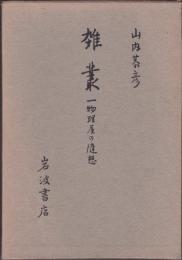 山内恭彦
雑叢
一物理屋の随想
岩波書店